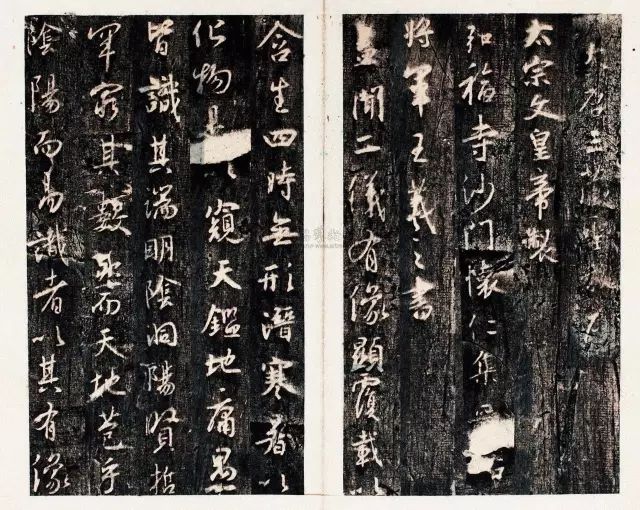 大唐三藏
太宗文皇帝製
弘福寺沙門懷仁集晉右
將軍王羲之書
蓋聞二儀有像顯覆載以
含生四時無形潛寒暑以
化物是以窺天鑑地庸愚
皆識其端明陰洞陽賢哲
罕窮其數然而天地苞乎
陰陽而易識者以其有像